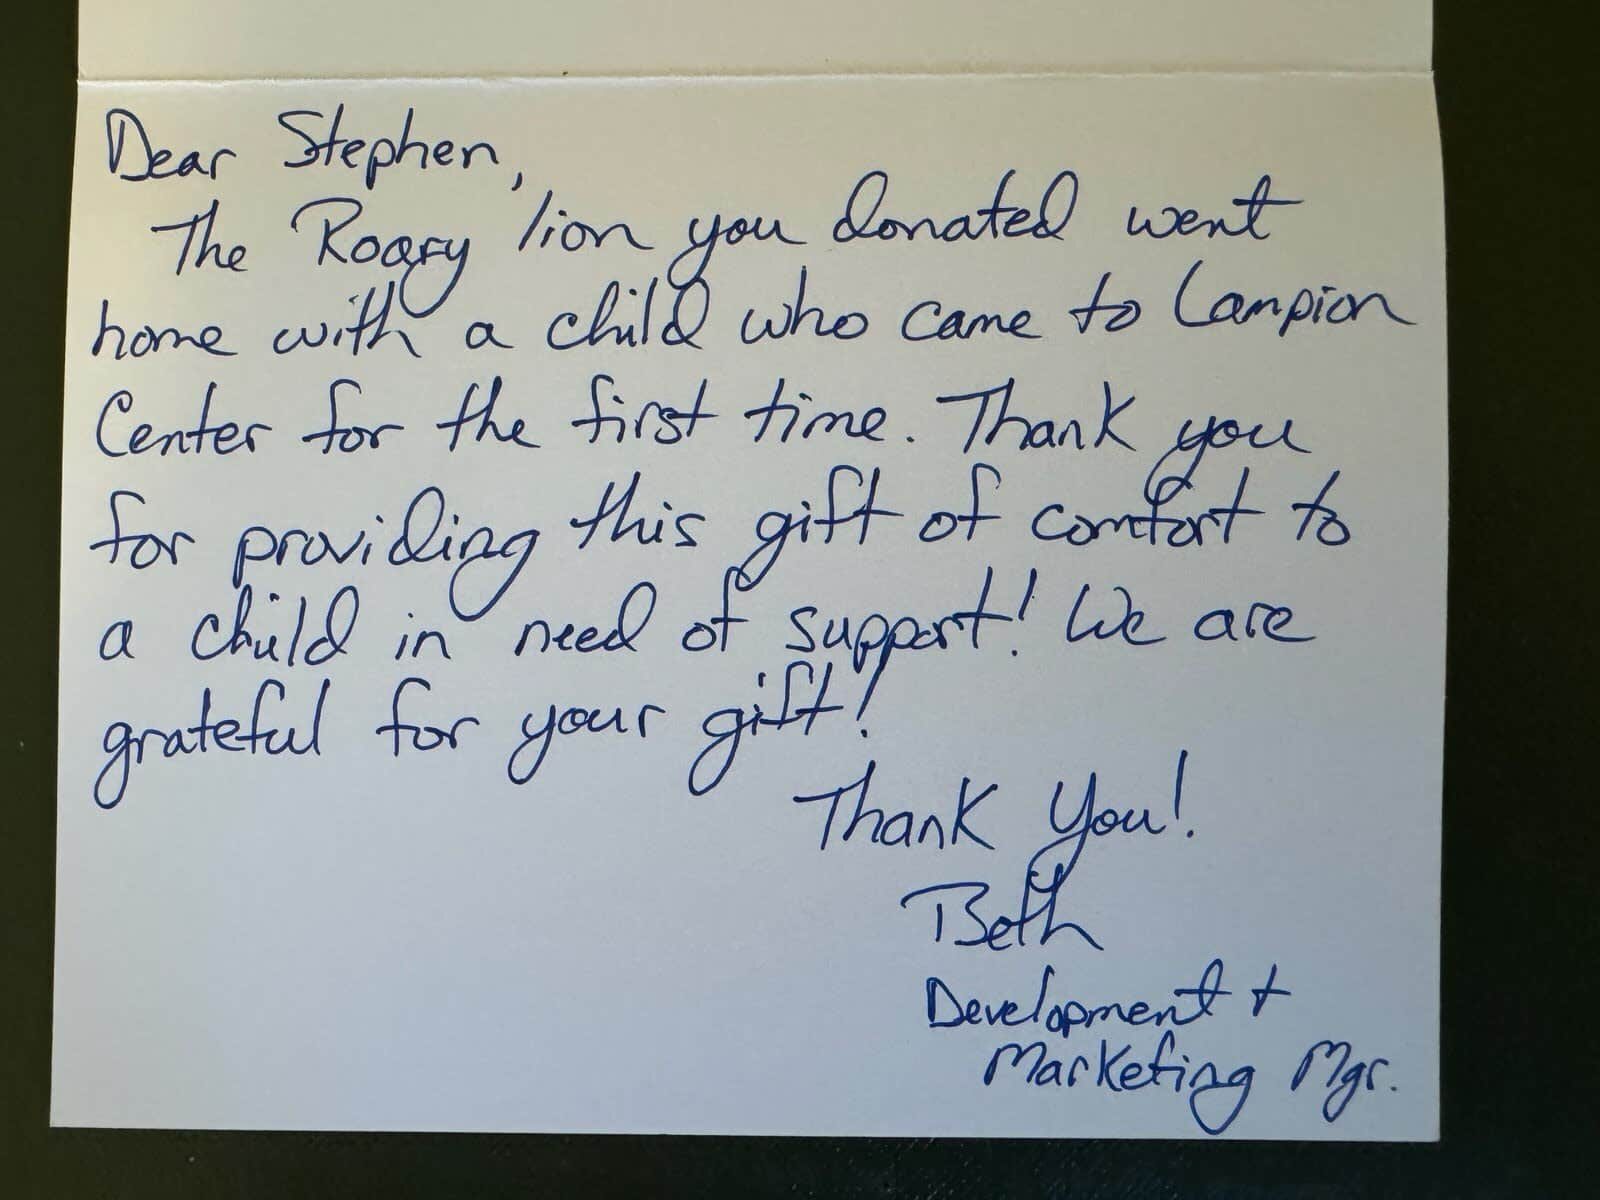 Dear Stephen,
The Roary lion you donated went
home with a child who came to Lampion
Center for the first time. Thank you
for providing this gift of comfort to
a child in need of support! We are
grateful for your gift!
Thank You!
Beth
Development +
Marketing Mgr.